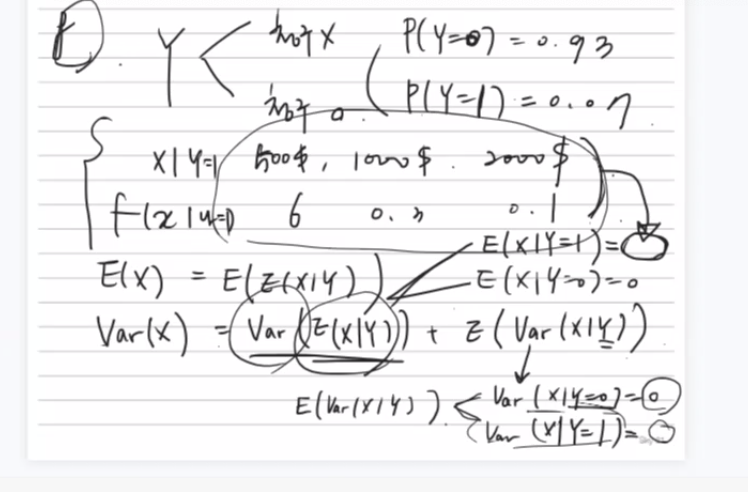 Y 청구 X P(Y=0) = 0.93
청구 o P(Y=1) = 0.07
X|Y=1 500$, 1000$. 2000$
f(x|y=1) 6 0.3 0.1
E(X|Y=1)=
E(X) = E(E(X|Y)) E(X|Y=0)=0
Var(X) = Var(E(X|Y)) + E(Var(X|Y))
E(Var(X|Y)) Var(X|Y=0)=0
Var(X|Y=1)=